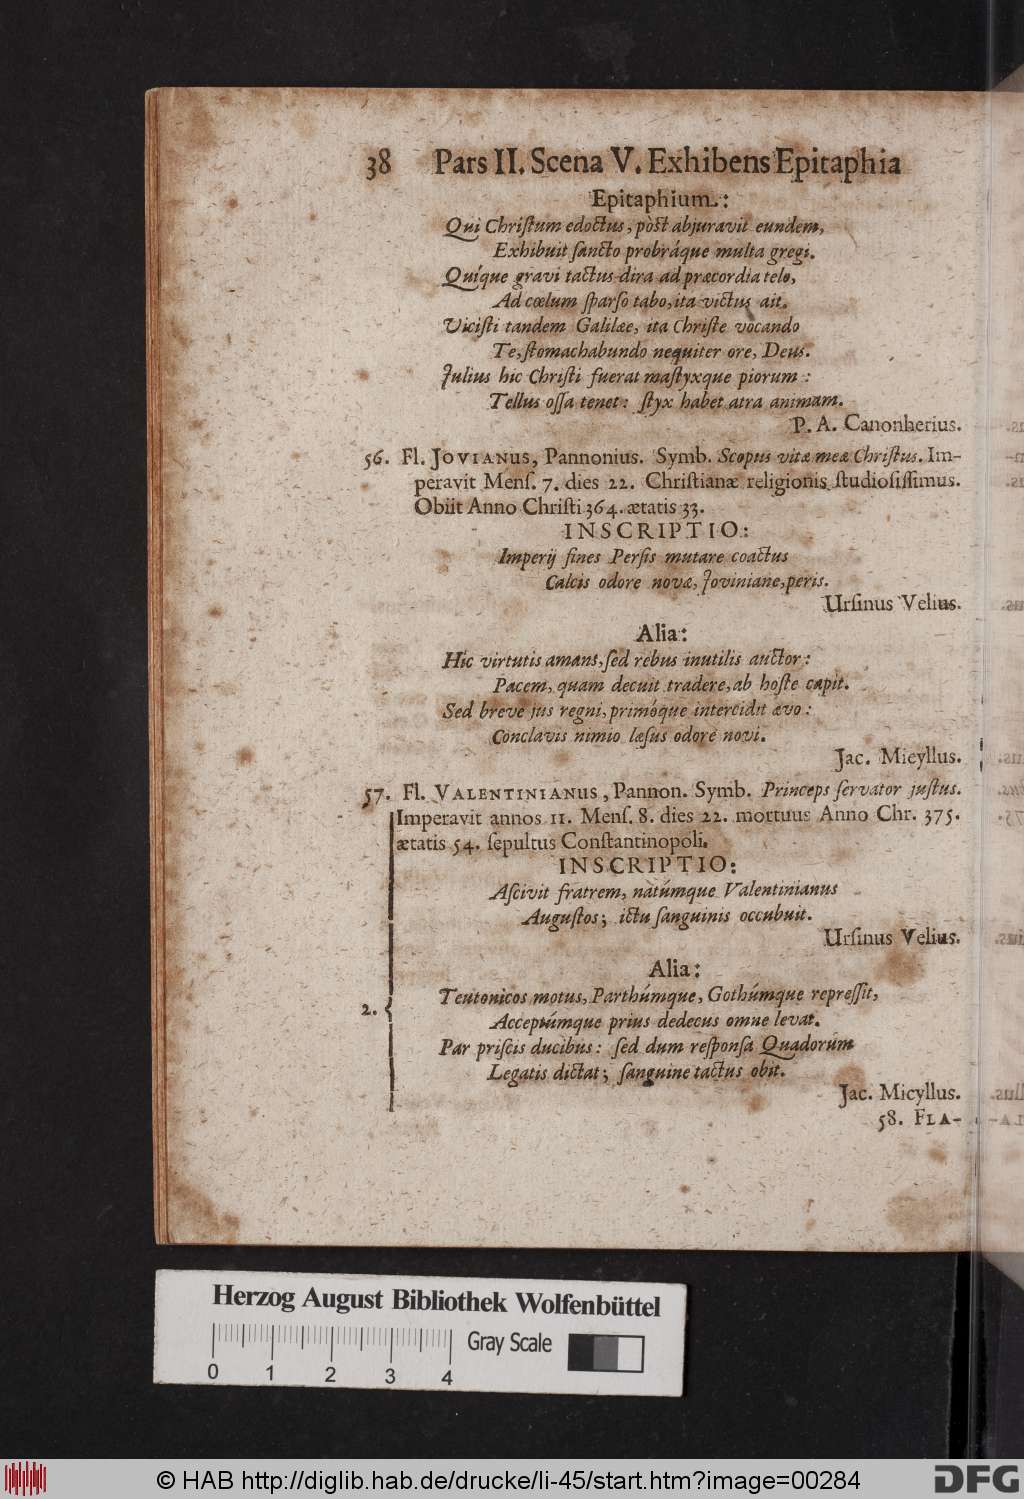 38 Pars II. Scena V. Exhibens Epitaphia
Epitaphium.:
Qui Chriſtum edoctus, pòst abjuravit eundem,
Exhibuit ſancto probráque multa gregi.
Quíque gravi tactus dira ad præcordia telo,
Ad cœlum ſparſo tabo, ita victus ait.
Viciſti tandem Galilæe, ita Chriſte vocando
Te, ſtomachabundo nequiter ore, Deus.
Julius hic Chriſti fuerat maſtyxque piorum:
Tellus oſſa tenet: ſtyx habet atra animam.
P. A. Canonherius.
56. Fl. JOVIANUS, Pannonius. Symb. Scopus vitæ meæ Chriſtus. Im-
peravit Menſ. 7. dies 22. Chriſtianæ religionis ſtudioſiſſimus.
Obiit Anno Chriſti 364. ætatis 33.
INSCRIPTIO:
Imperij fines Perſis mutare coactus
Calcis odore novæ, Joviniane, peris.
Urſinus Velius.
Alia:
Hic virtutis amans, ſed rebus inutilis auctor:
Pacem, quam decuit tradere, ab hoſte capit.
Sed breve jus regni, primóque intercidit ævo:
Conclavis nimio læſus odore novi.
Jac. Micyllus.
57. Fl. VALENTINIANUS, Pannon. Symb. Princeps ſervator juſtus.
Imperavit annos 11. Menſ. 8. dies 22. mortuus Anno Chr. 375.
ætatis 54. ſepultus Conſtantinopoli.
INSCRIPTIO:
Aſcivit fratrem, natúmque Valentinianus
Auguſtos; ictu ſanguinis occubuit.
Urſinus Velius.
Alia:
2. Teutonicos motus, Parthúmque, Gothúmque repreſſit,
Acceptúmque prius dedecus omne levat.
Par priſcis ducibus: ſed dum reſponſa Quadorúm
Legatis dictat; ſanguine tactus obit.
Jac. Micyllus.
58. FLA-
Herzog August Bibliothek Wolfenbüttel
Gray Scale
0 1 2 3 4
© HAB http://diglib.hab.de/drucke/li-45/start.htm?image=00284
DFG